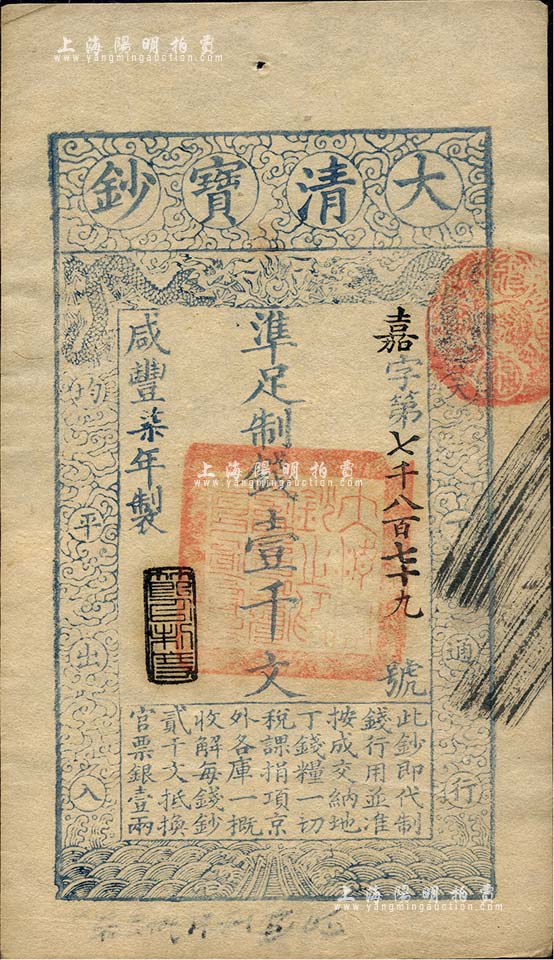 上海陽明拍賣
www.yangmingauction.com
大清寶鈔
天下通行
均平出入
嘉字第七千八百七十九號
準足制錢壹千文
咸豐柒年製
上海陽明拍賣
www.yangmingauction.com
此鈔即代制
錢行用並准
按成交納地
丁錢糧一切
稅課捐項京
外各庫一概
收解每錢鈔
貳千文抵換
官票銀壹兩
上海陽明拍賣
www.yangmingauction.com